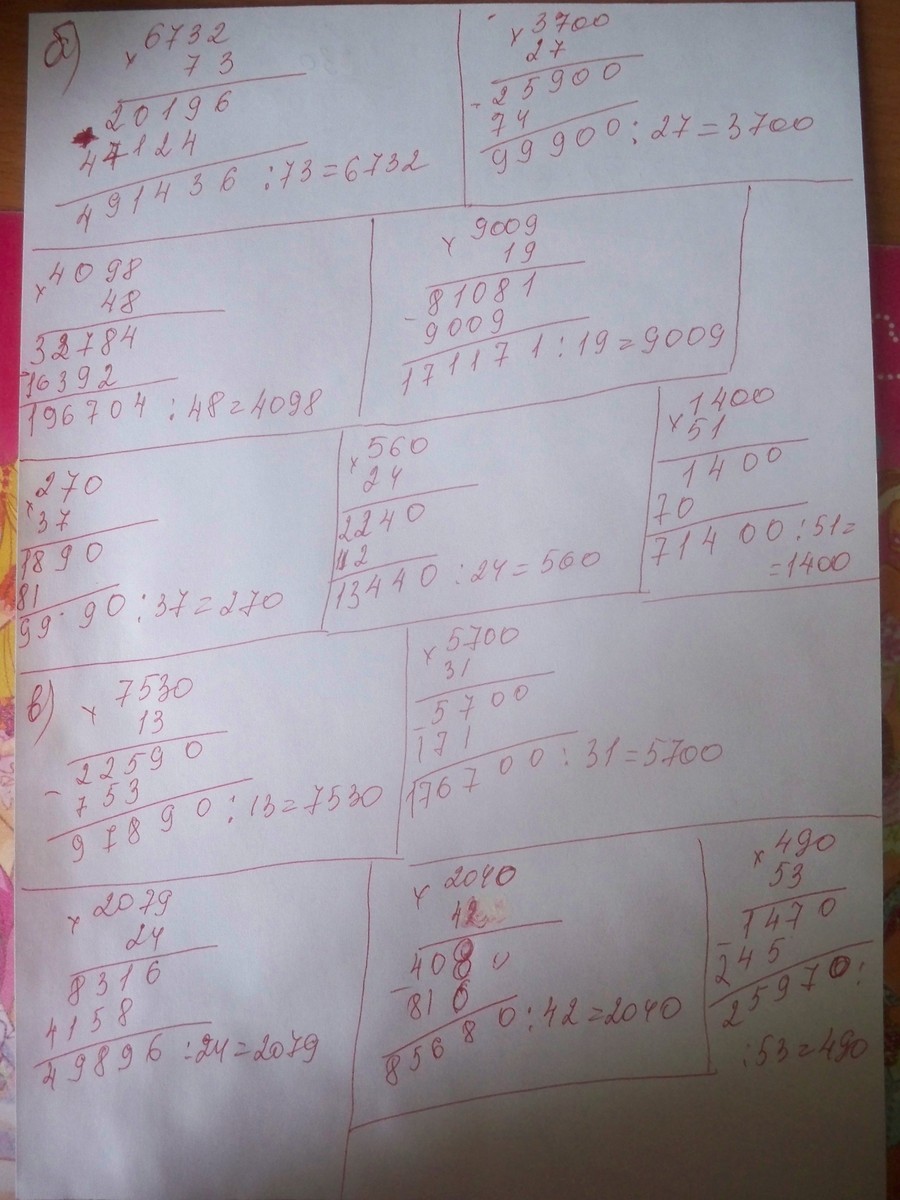 б)
× 6732
73
20196
47124
491436 : 73 = 6732
× 3700
27
25900
74
99900 : 27 = 3700
× 4098
48
32784
16392
196704 : 48 = 4098
× 9009
19
81081
9009
171171 : 19 = 9009
× 270
37
1890
81
9990 : 37 = 270
× 560
24
2240
112
13440 : 24 = 560
× 1400
51
1400
70
71400 : 51 =
= 1400
в)
× 7530
13
22590
753
97890 : 13 = 7530
× 5700
31
5700
171
176700 : 31 = 5700
× 2079
24
8316
4158
49896 : 24 = 2079
× 2040
42
4080
816
85680 : 42 = 2040
× 490
53
1470
245
25970 :
: 53 = 490